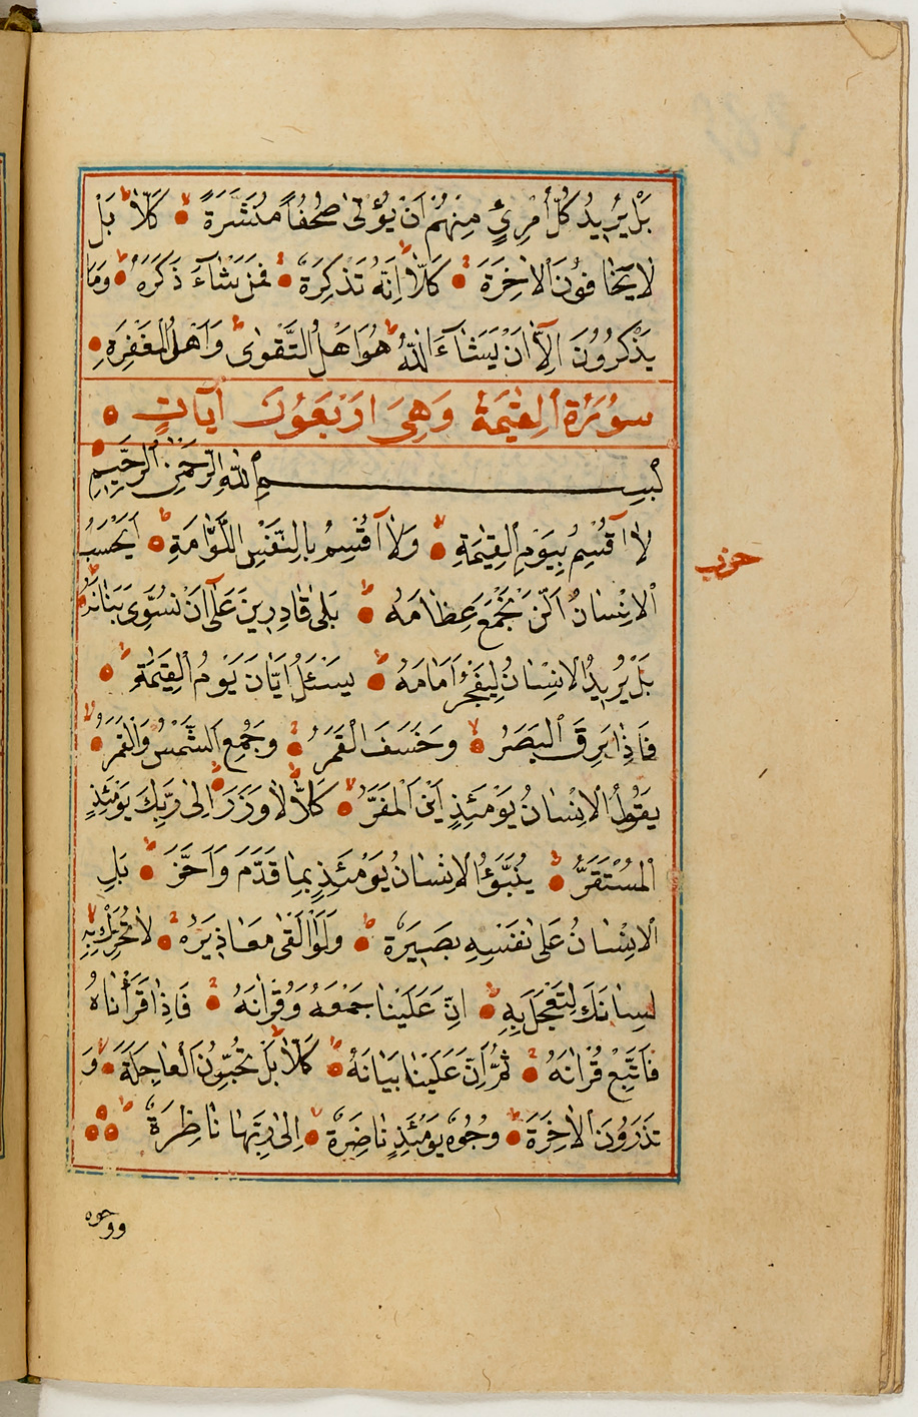 بَلْ يُرِيدُ كُلُّ امْرِئٍ مِنْهُمْ اَنْ يُؤْتٰى صُحُفًا مُنَشَّرَةً كَلَّا بَلْ
لَا يَخَافُونَ الْاٰخِرَةَ كَلَّا اِنَّهُ تَذْكِرَةٌ فَمَنْ شَآءَ ذَكَرَهُ وَمَا
يَذْكُرُونَ اِلَّا اَنْ يَشَآءَ اللّٰهُ هُوَ اَهْلُ التَّقْوٰى وَاَهْلُ الْمَغْفِرَةِ
سُورَةُ الْقِيٰمَةِ وَهِىَ اَرْبَعُونَ آيَاتٍ
بِسْمِ اللّٰهِ الرَّحْمٰنِ الرَّحِيمِ
لَآ اُقْسِمُ بِيَوْمِ الْقِيٰمَةِ وَلَآ اُقْسِمُ بِالنَّفْسِ اللَّوَّامَةِ اَيَحْسَبُ
حزب
الْاِنْسَانُ اَلَّنْ نَجْمَعَ عِظَامَهُ بَلٰى قَادِرِينَ عَلٰٓى اَنْ نُسَوِّىَ بَنَانَهُ
بَلْ يُرِيدُ الْاِنْسَانُ لِيَفْجُرَ اَمَامَهُ يَسْـَٔلُ اَيَّانَ يَوْمُ الْقِيٰمَةِ
فَاِذَا بَرِقَ الْبَصَرُ وَخَسَفَ الْقَمَرُ وَجُمِعَ الشَّمْسُ وَالْقَمَرُ
يَقُولُ الْاِنْسَانُ يَوْمَئِذٍ اَيْنَ الْمَفَرُّ كَلَّا لَا وَزَرَ اِلٰى رَبِّكَ يَوْمَئِذٍ
الْمُسْتَقَرُّ يُنَبَّؤُ الْاِنْسَانُ يَوْمَئِذٍ بِمَا قَدَّمَ وَاَخَّرَ بَلِ
الْاِنْسَانُ عَلٰى نَفْسِهِ بَصِيرَةٌ وَلَوْ اَلْقٰى مَعَاذِيرَهُ لَا تُحَرِّكْ بِهِ
لِسَانَكَ لِتَعْجَلَ بِهِ اِنَّ عَلَيْنَا جَمْعَهُ وَقُرْاٰنَهُ فَاِذَا قَرَأْنَاهُ
فَاتَّبِعْ قُرْاٰنَهُ ثُمَّ اِنَّ عَلَيْنَا بَيَانَهُ كَلَّا بَلْ تُحِبُّونَ الْعَاجِلَةَ وَ
تَذَرُونَ الْاٰخِرَةَ وُجُوهٌ يَوْمَئِذٍ نَاضِرَةٌ اِلٰى رَبِّهَا نَاظِرَةٌ
ووجوه